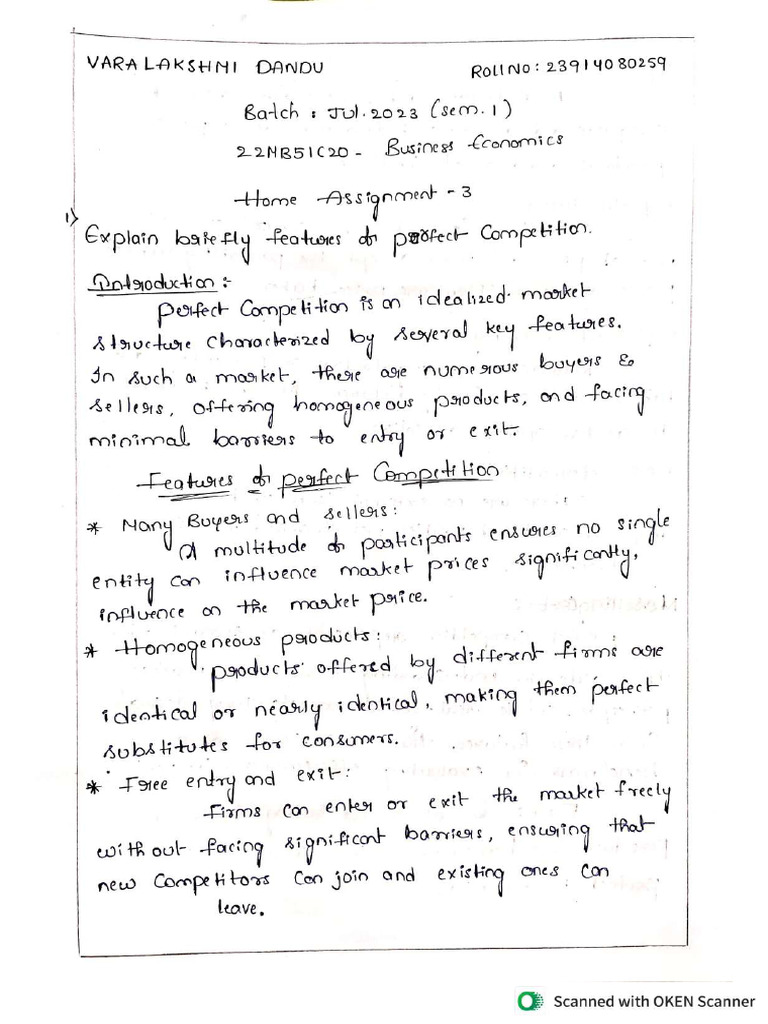 VARA LAKSHMI DANDU
Roll NO: 23914080259
Batch: Jul.2023 (sem.1)
22MB51C20 - Business Economics
Home Assignment - 3
1) Explain briefly features of perfect Competition.
Introduction:-
perfect Competition is an idealized market
structure characterized by several key features.
In such a market, there are numerous buyers &
sellers, offering homogeneous products, and facing
minimal barriers to entry or exit.
Features of perfect Competition
* Many Buyers and sellers:
A multitude of participants ensures no single
entity can influence market prices significantly,
influence on the market price.
* Homogeneous products:
products offered by different firms are
identical or nearly identical, making them perfect
substitutes for consumers.
* Free entry and exit:
Firms can enter or exit the market freely
with out facing significant barriers, ensuring that
new Competitors can join and existing ones can
leave.
Scanned with OKEN Scanner